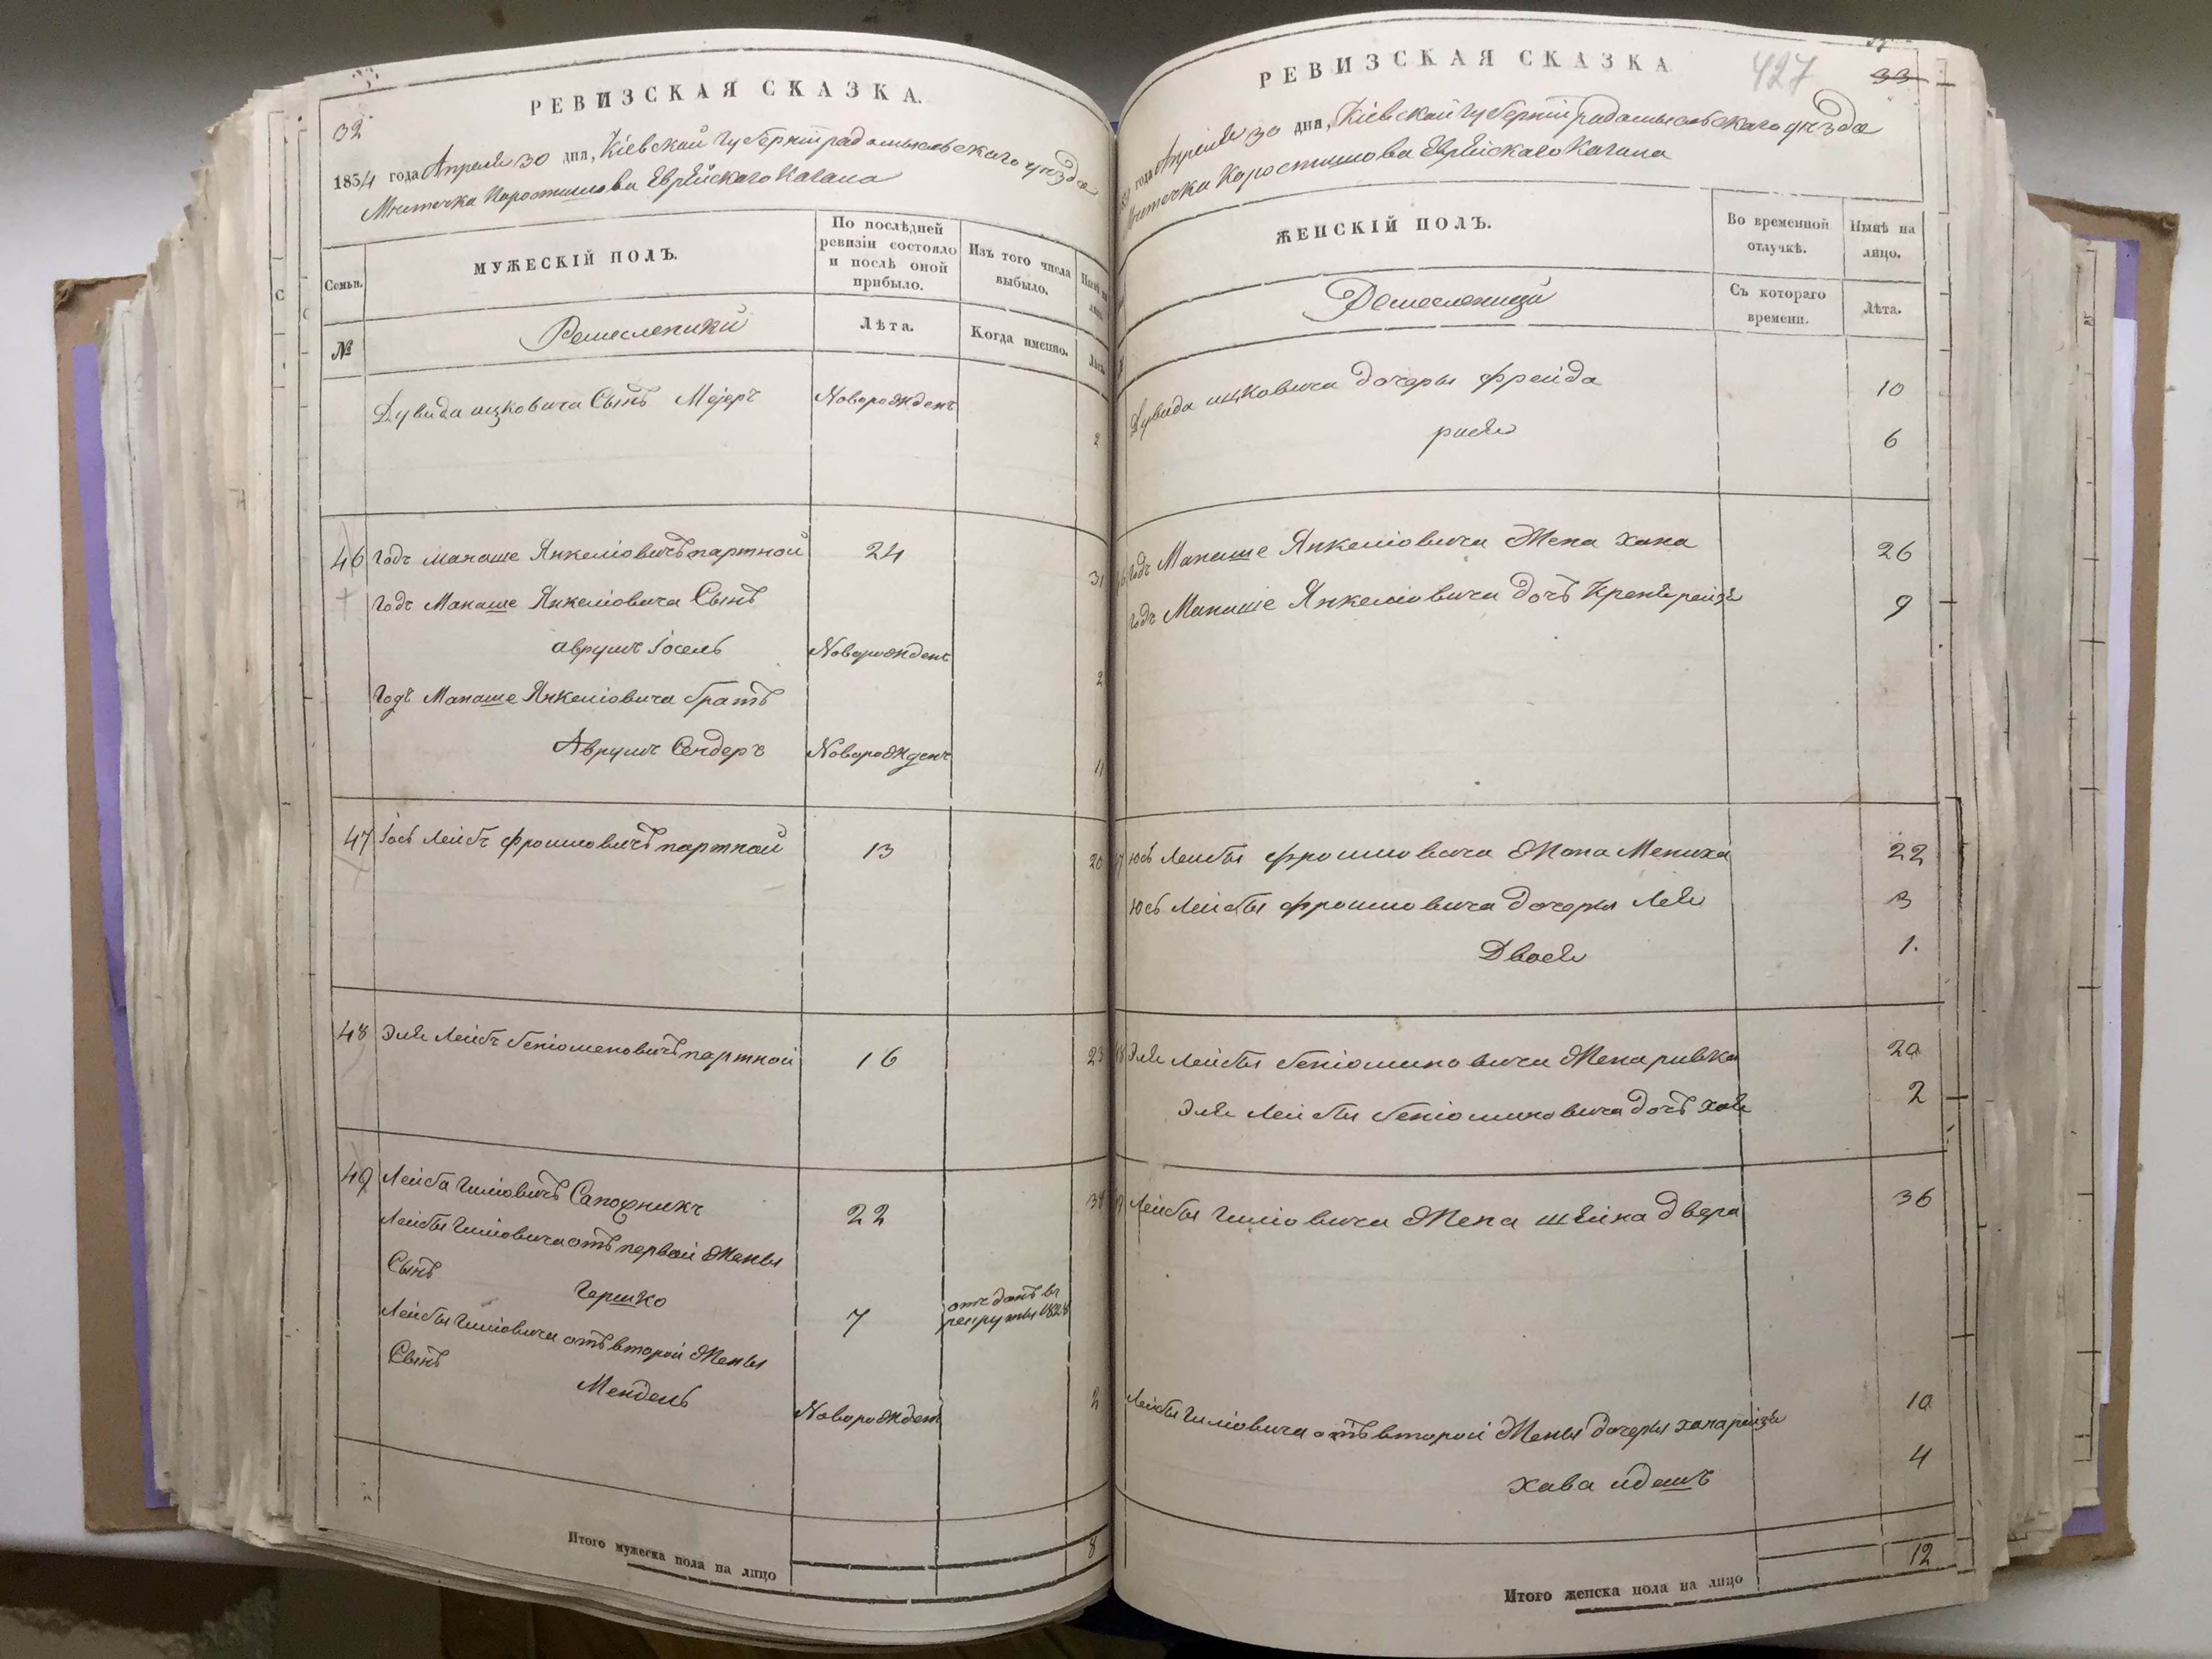 РЕВИЗСКАЯ СКАЗКА.
32
1834 года Апреля 30 дня, Кіевской Губерніи радомысльскаго уѣзда
Мѣстечка Коростишова Еврѣйскаго Кагала
Семьи.
МУЖЕСКІЙ ПОЛЪ.
По послѣдней ревизіи состояло и послѣ оной прибыло.
Изъ того числа выбыло.
№
Ремесленики
Лѣта.
Когда именно.
Дувида ицковича Сынъ Меjеръ Новорожденъ 2
46 Годъ Манаше Янкеліовичъ партной 24 31
Годъ Манаше Янкеліовича Сынъ
аврумъ Іосель Новорожденъ 2
Годъ Манаше Янкеліовича братъ
Аврумъ Сендеръ Новорожденъ 11
47 Іось Лейбъ фроимовичъ партной 13 20
48 Эле Лейбъ беніоменовичъ партной 16 23
49 Лейба Гиліовичъ Сапожникъ 22 38
Лейбы Гиліовича отъ первой Жены
Сынъ
Гершко 7 отъданъ въ рекруты 1828
Лейбы Гиліовича отъ второй Жены
Сынъ
Мендель Новорожден 2
Итого мужеска пола на лицо 8
РЕВИЗСКАЯ СКАЗКА
427
33
года Апреля 30 дня, Кіевской Губерніи радомысльскаго уѣзда
Мѣстечка Коростишова Еврѣйскаго Кагала
ЖЕНСКІЙ ПОЛЪ.
Во временной отлучкѣ.
Нынѣ на лицо.
Съ котораго времени.
Лѣта.
Дувида ицковича дочеры фрейда 10
6
Годъ Манаше Янкеліовича Жена хана 26
Годъ Манаше Янкеліовича дочъ Крейнерейзе 9
Юсь Лейбы фроимовича Жона Мениха 22
Юсь Лейбы фроимовича дочеры Лея 3
Двося 1.
Эле Лейбы беніоминовича Жена ривка 20
Эле Лейбы беніоминовича дочъ хая 2
Лейбы Гиліовича Жена шѣйна двера 36
Лейбы Гиліовича отъ второй Жены дочеры ханарейзе 10
Хава идашъ 4
Итого женска пола на лицо 12